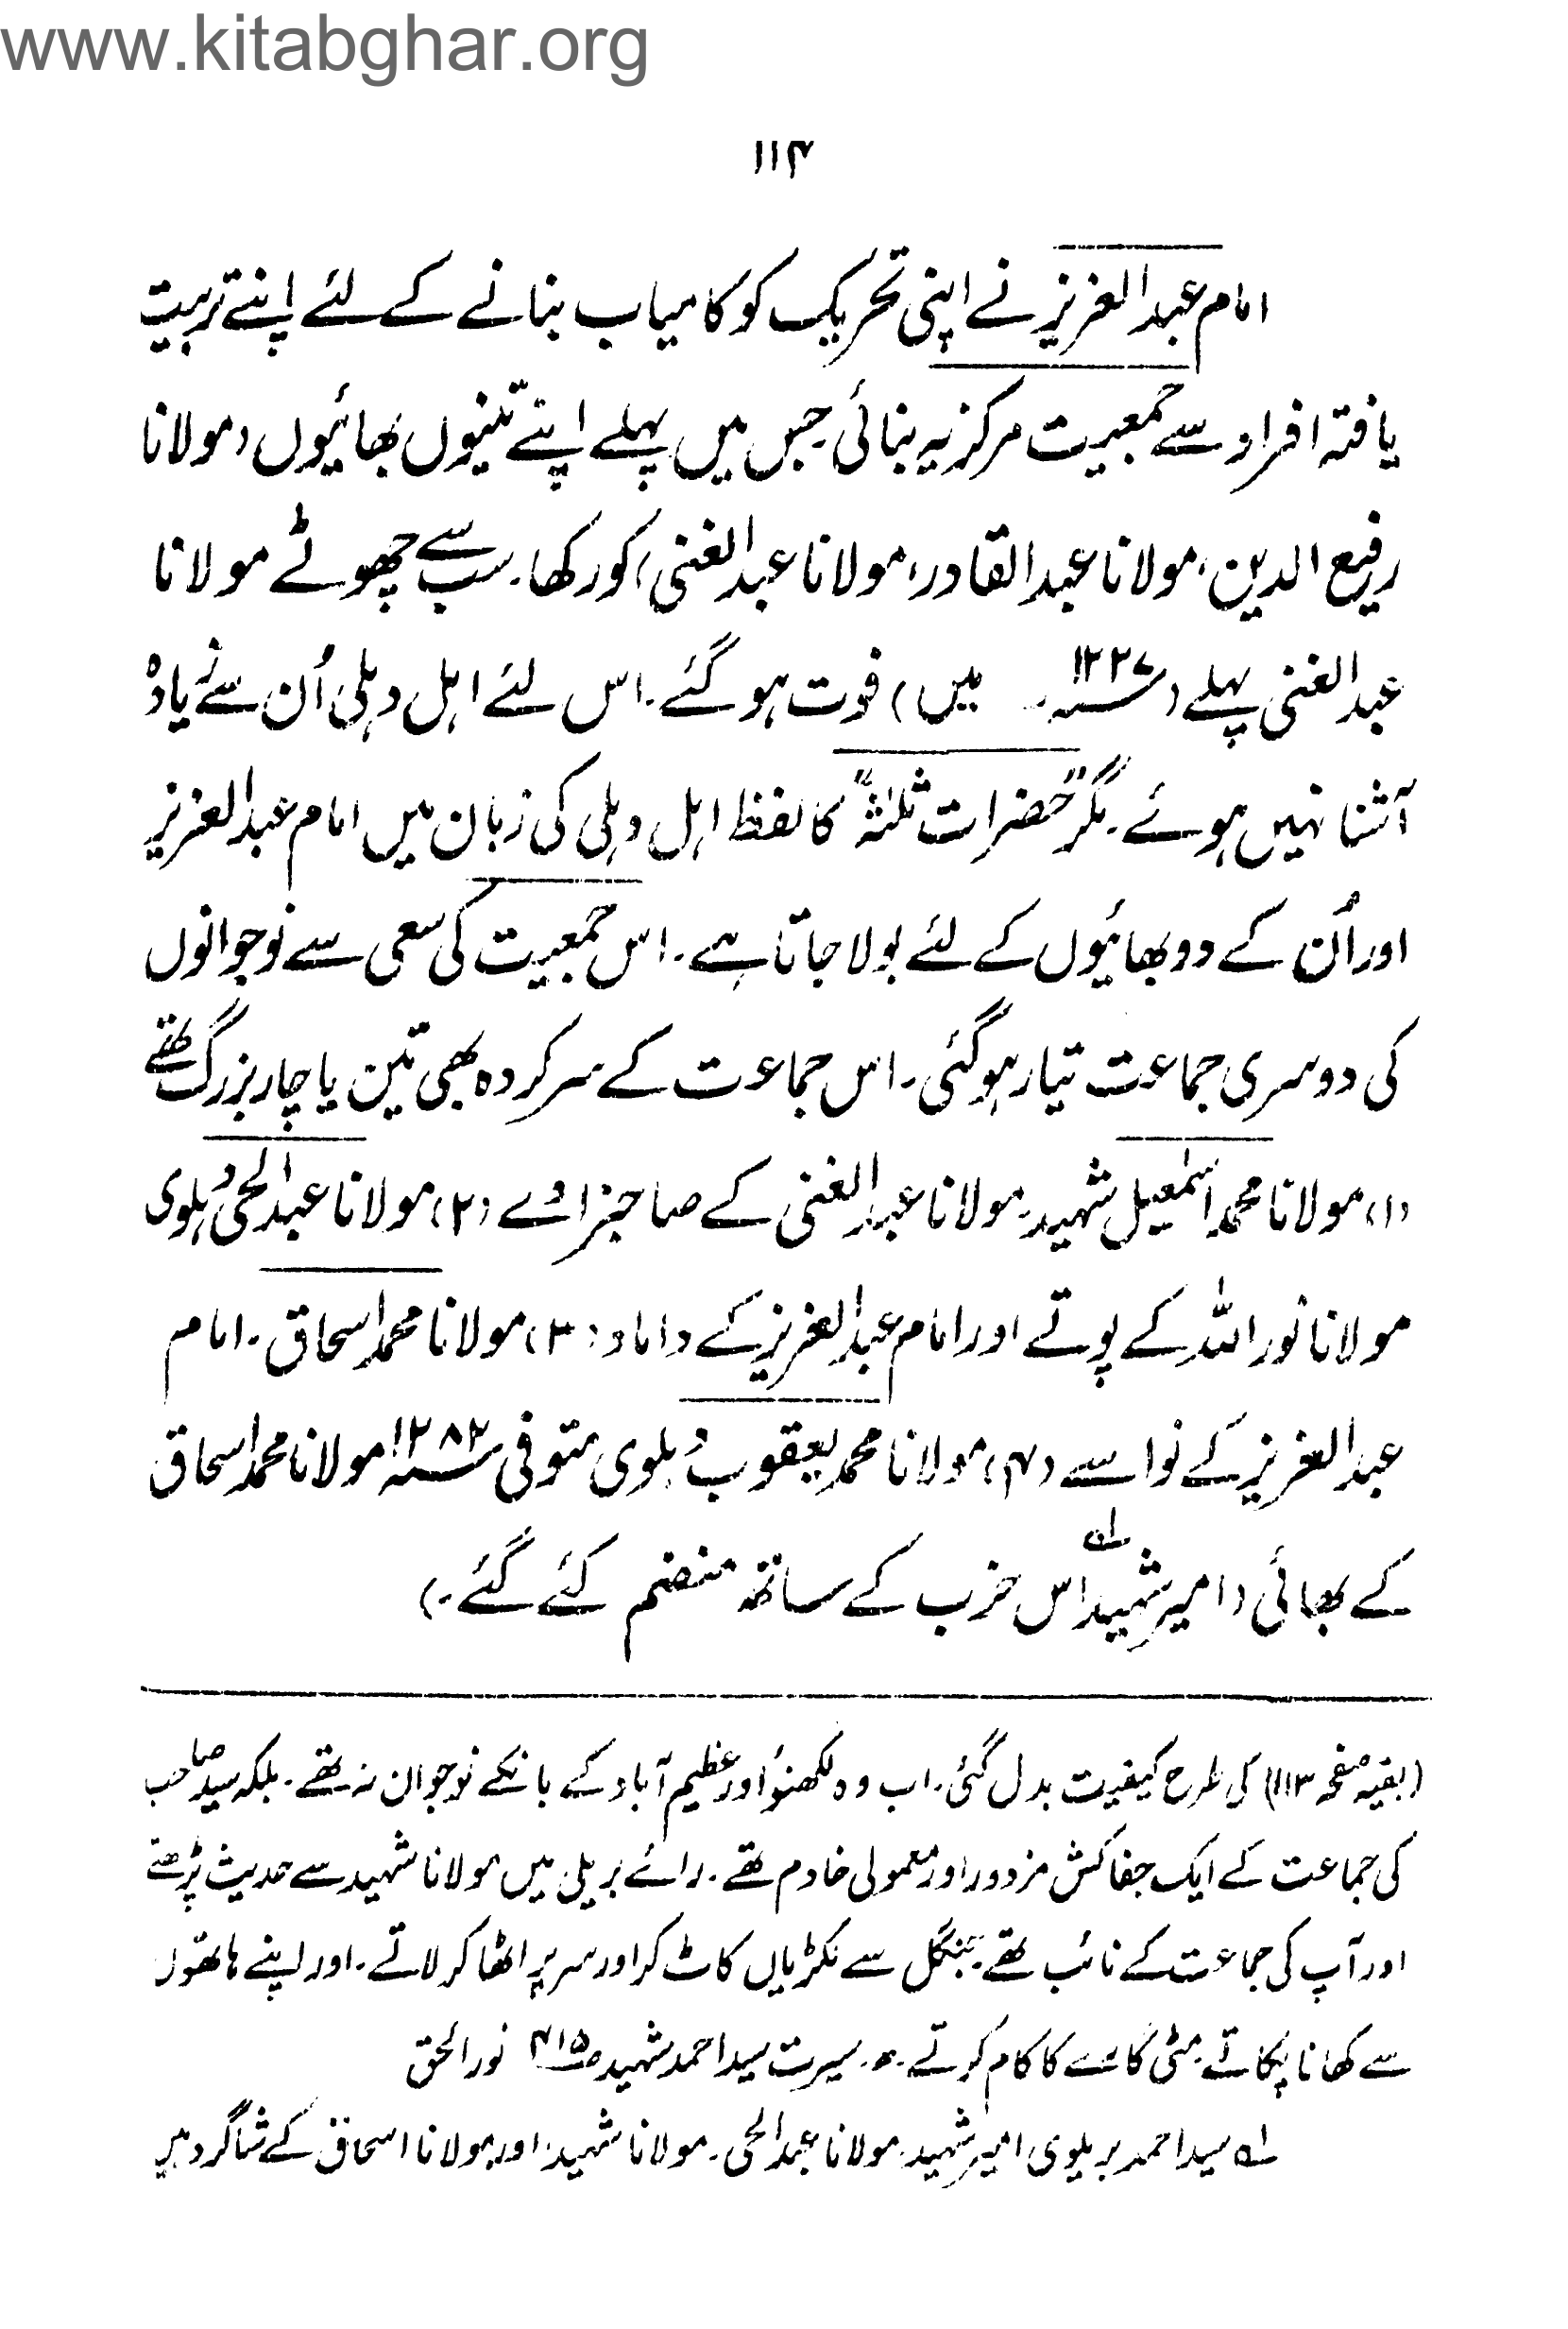 www.kitabghar.org
۱۱۴
امام عبدالعزیز نے اپنی تحریک کو کامیاب بنانے کے لئے اپنے تربیت
یافتہ افراد سے جمعیت مرکزیہ بنائی جس میں پہلے اپنے تینوں بھائیوں (مولانا
رفیع الدین، مولانا عبدالقادر، مولانا عبدالغنی) کو رکھا۔ سب سے چھوٹے مولانا
عبدالغنی پہلے (۱۲۲۷ھ میں) فوت ہو گئے۔ اس لئے اہل دہلی اُن سے زیادہ
آشنا نہیں ہوئے۔ مگر "حضرات ثلثہ" کا لفظ اہل دہلی کی زبان میں امام عبدالعزیز
اور اُن کے دو بھائیوں کے لئے بولا جاتا ہے۔ اس جمعیت کی سعی سے نوجوانوں
کی دوسری جماعت تیار ہو گئی۔ اس جماعت کے سرکردہ بھی تین یا چار بزرگ تھے
(۱) مولانا محمد اسمٰعیل شہید۔ مولانا عبدالغنی کے صاحبزادے (۲) مولانا عبدالحی دہلوی
مولانا نور اللہ کے پوتے اور امام عبدالعزیز کے داماد (۳) مولانا محمد اسحاق۔ امام
عبدالعزیز کے نواسے (۴) مولانا محمد یعقوب دہلوی متوفی ۱۲۸۲ھ مولانا محمد اسحاق
کے بھائی (امیر شہید لہ اس حزب کے ساتھ منضم کئے گئے۔)
(بقیہ صفحہ ۱۱۳) کی طرح کیفیت بدل گئی۔ اب وہ لکھنؤ اور عظیم آباد کے بانکے نوجوان نہ تھے۔ بلکہ سید صاحب
کی جماعت کے ایک جفاکش مزدور اور معمولی خادم تھے۔ رائے بریلی میں مولانا شہید سے حدیث پڑھتے
اور آپ کی جماعت کے نائب تھے۔ جنگل سے لکڑیاں کاٹ کر اور سر پر اٹھا کر لاتے۔ اور اپنے ہاتھوں
سے کھانا پکاتے۔ مٹی گارے کا کام کرتے۔ سیرت سید احمد شہید ص۴۱۵ نور الحق
لہ سید احمد بریلوی امیر شہید۔ مولانا عبدالحی۔ مولانا شہید۔ اور مولانا اسحاق کے شاگرد ہیں